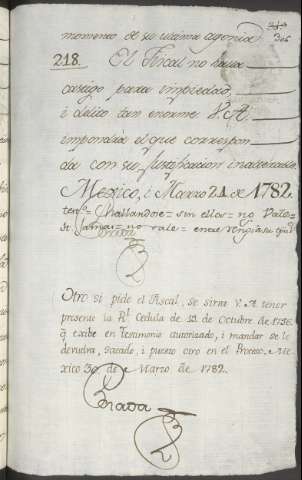 momento de su ultima agonia
306
218. El Fiscal no halla
castigo para impiedad,
i delito tan enorme V. A.
impondra el que correspon
da con su justificacion inalterable.
Mexico, i Marzo 21 de 1782.
hallandose = sin ellos = no vale =
no vale = entre renglones
Otro si pide el Fiscal, se sirva V. A. tener
presente la Rl. Cedula de 12 de Octubre de
q. exibe en Testimonio autorizado, i mandar se le
devuelva, sacado, i puesto otro en el Proceso. Me-
xico 30 de Marzo de 1782.